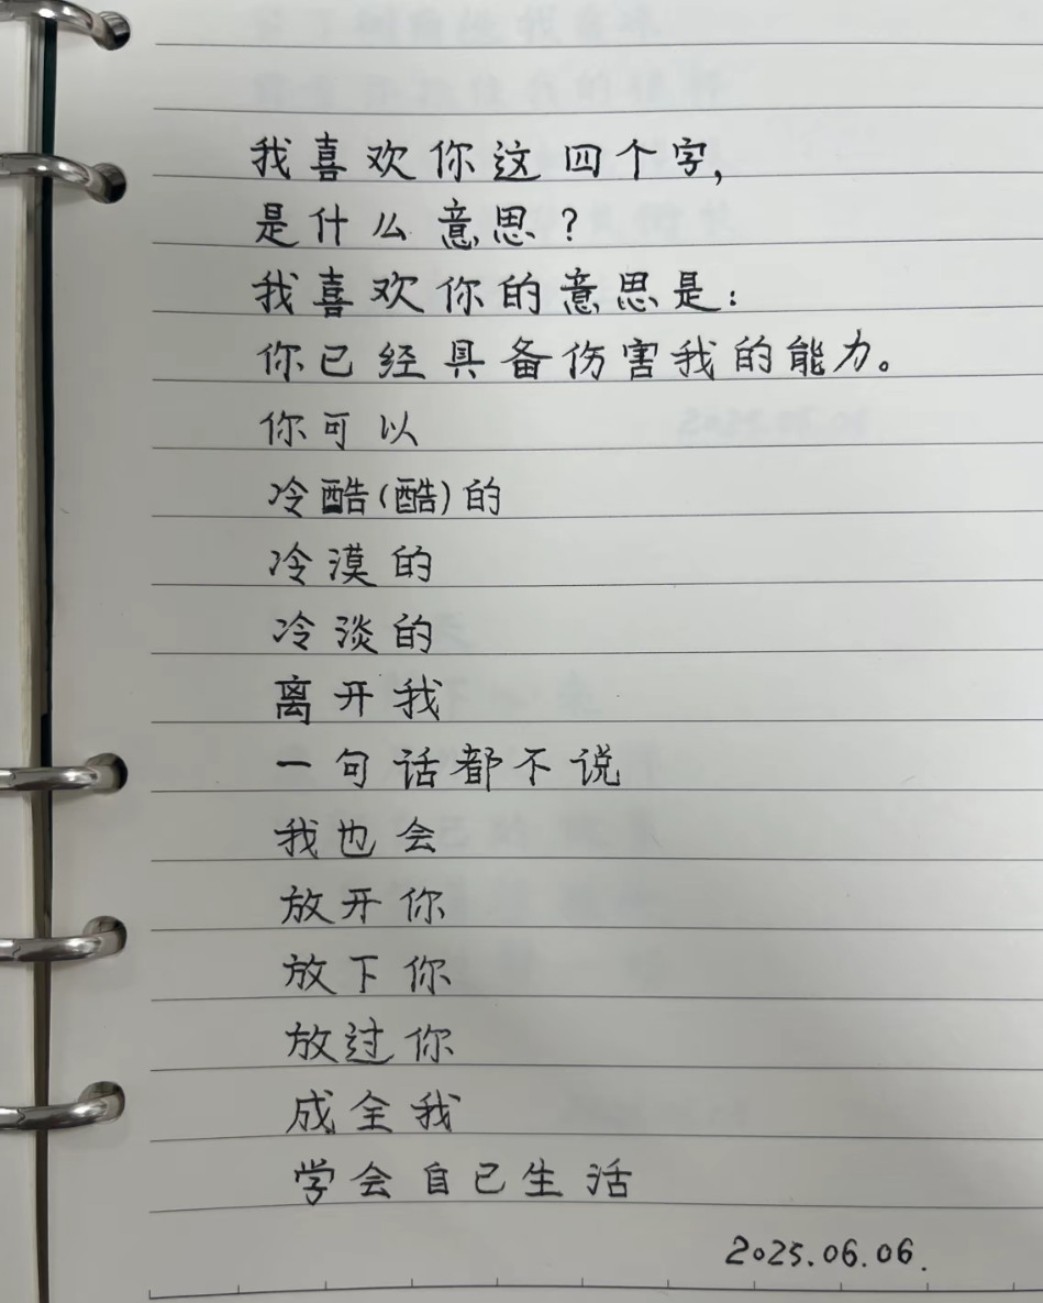 我喜欢你这四个字,
是什么意思?
我喜欢你的意思是:
你已经具备伤害我的能力。
你可以
冷酷(酷)的
冷漠的
冷淡的
离开我
一句话都不说
我也会
放开你
放下你
放过你
成全我
学会自己生活
2025.06.06.